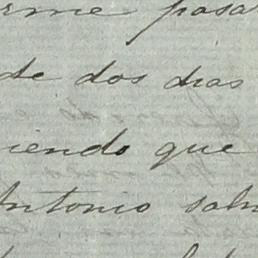 rme pasa
de dos dias
iendo que
Antonio sal